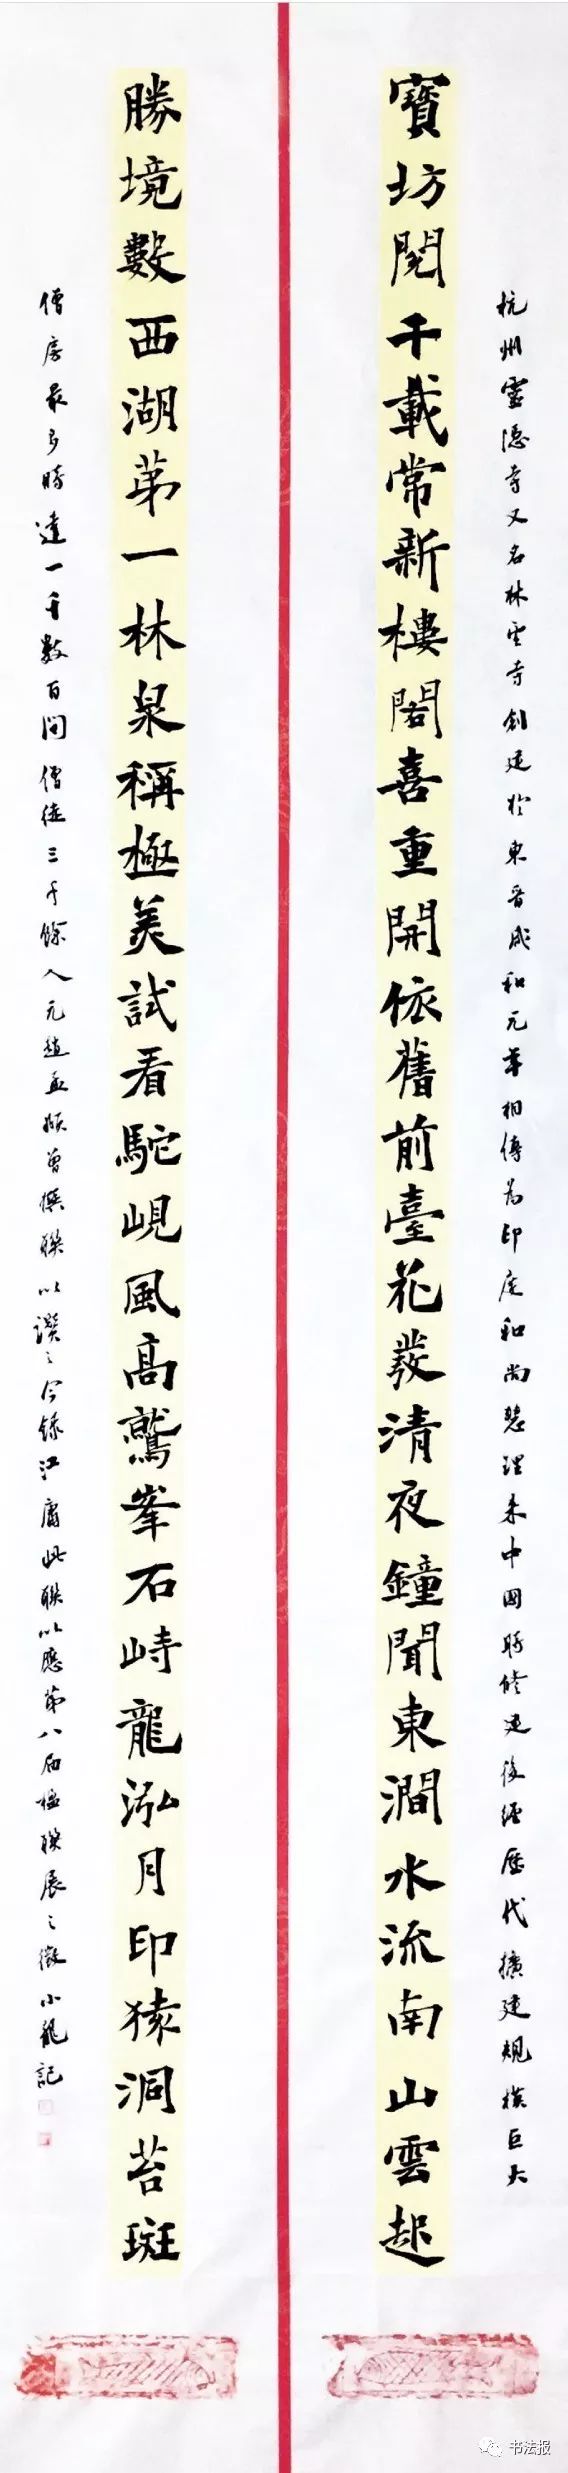 杭州靈隱寺又名林雲寺創建於東晉咸和元年相傳為印度和尚慧理來中國時修建後經歷代擴建規模巨大
寶坊閱千載常新樓閣喜重開依舊前臺花發清夜鐘聞東澗水流南山雲起
勝境數西湖第一林泉稱極美試看駝峴風高鷲峯石峙龍泓月印猿洞苔斑
僧房最多時達一千數百間僧徒三千餘人元趙孟頫曾撰聯以讚之今錄江庸此聯以應第八屆楹聯展之徵小龍記
书法报